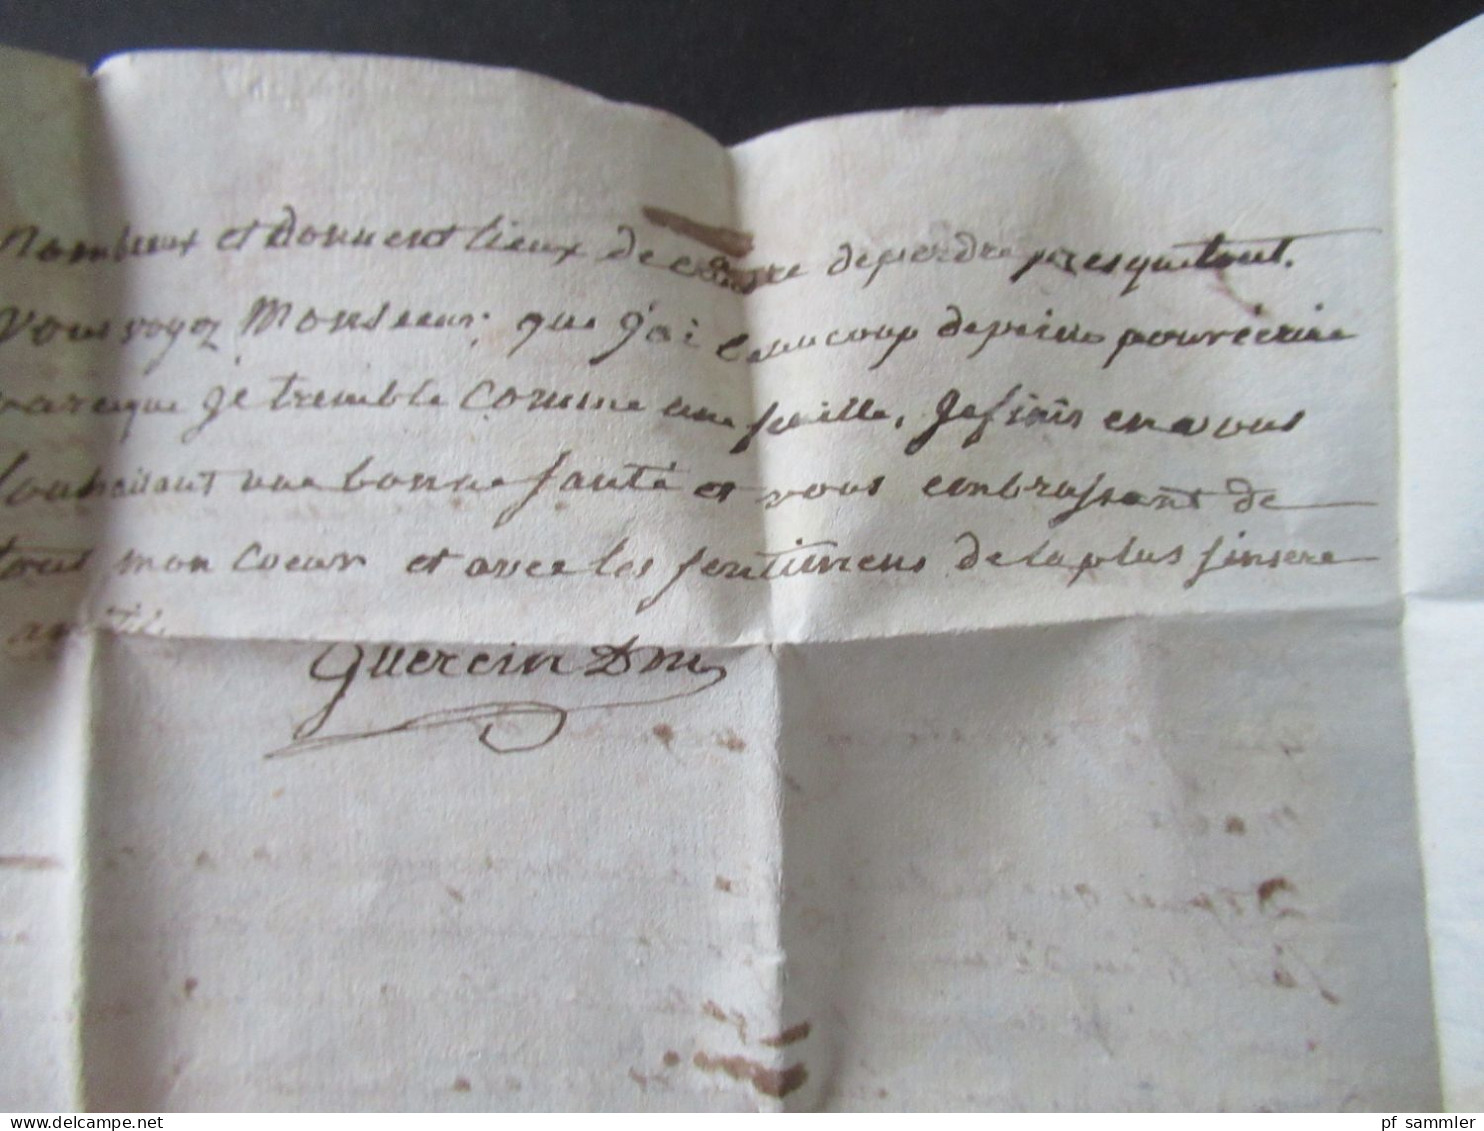 nombreux et donnent lieux de craindre de perdre presque tout.
vous voyez Monsieur. que j'ai beaucoup de peine pour écrire
parceque je tremble comme une feuille, je finis en vous
souhaitant une bonne santé et vous embrassant de
tout mon coeur et avec les sentimens de la plus sinsere
amitié.
quercin Dm
pf_sammler